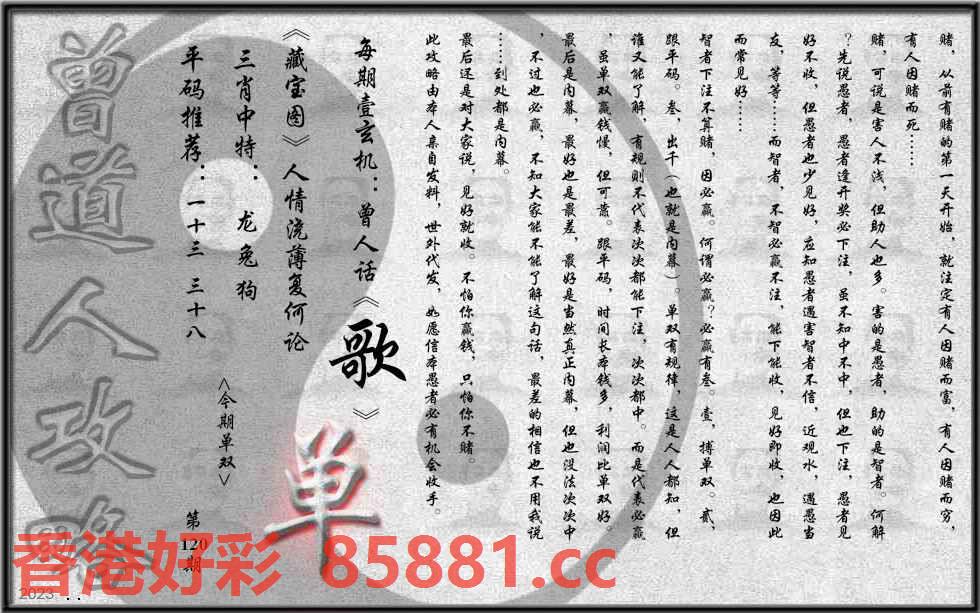 赌，从前有赌的第一天开始，就注定有人因赌而富，有人因赌而穷，
有人因赌而死……
赌，可说是害人不浅，但助人也多。害的是愚者，助的是智者。何解
？先说愚者，愚者逢开奖必下注，虽不知中不中，但也下注，愚者见
好不收，但愚者也少见好，应知愚者遇害智者不信，近观水，遇愚当
友，等等……而智者，不智必赢不注，能下能收，见好即收，也因此
而常见好……
智者下注不算赌，因必赢。何谓必赢？必赢有叁。壹，搏单双。贰，
跟平码。叁，出千（也就是内幕）。单双有规律，这是人人都知，但
谁又能了解，有规则不代表次次都能下注，次次都中。而是代表必赢
，虽单双赢钱慢，但可靠。跟平码，时间长本钱多，利润比单双好。
最后是内幕，最好也是最差，最好是当然真正内幕，但也没法次次中
，不过也必赢，不知大家能不能了解这句话，最差的相信也不用我说
……到处都是内幕。
最后还是对大家说，见好就收。不怕你赢钱，只怕你不赌。
此攻略由本人亲自发料，世外代发，如愿信本愚者必有机会收手。
每期壹玄机：曾人话《歌》
《藏宝图》人情浇薄复何论
单
三肖中特：龙兔狗
<今期单双>
平码推荐：一十三 三十八
第120期
曾道人攻略
香港好彩 85881.cc
2023